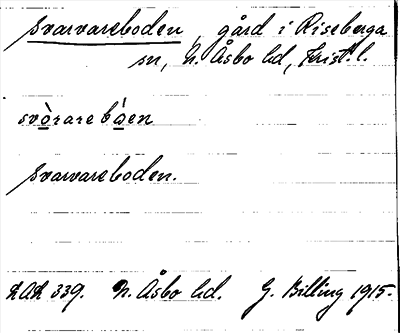 Svarvareboden, gård i Riseberga
sn, N. Åsbo hd, Krist. l.
svòrarebáen
Svarvareboden.
LAL 339. N. Åsbo hd. G. Billing 1915.